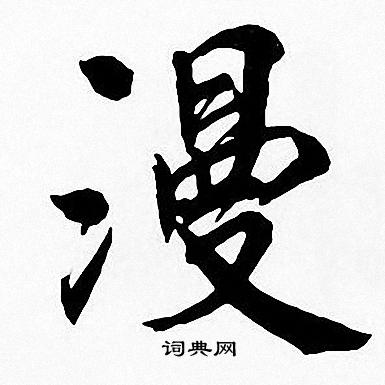 漫
词典网